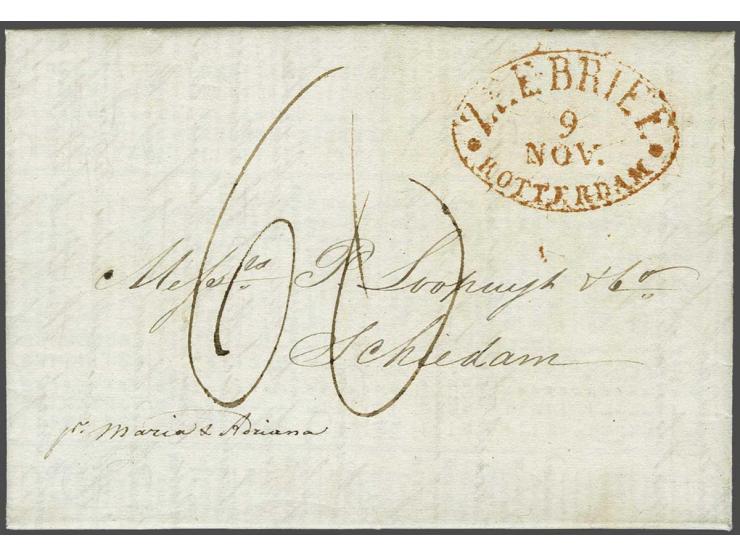 ZEEBRIEF
9
NOV.
ROTTERDAM
60
Messrs. P. Loopuyt & Co.
Schiedam
pr. Maria & Adriana